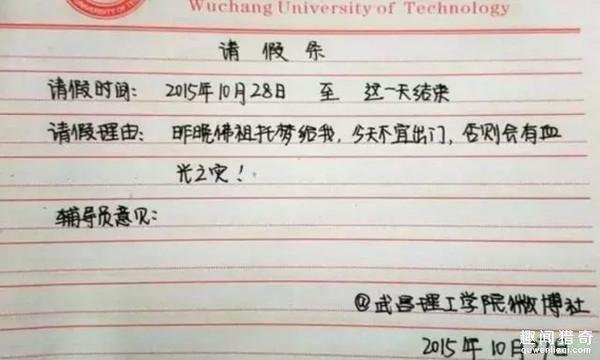 Wuchang University of Technology
UNIVERSITY OF TECHNOLOGY
请假条
请假时间: 2015年10月28日 至 这一天结束
请假理由: 昨晚佛祖托梦给我,今天不宜出门,否则会有血
光之灾!
辅导员意见:
@武昌理工学院微博社
2015年10月
趣闻猎奇
quwenlieqi.com